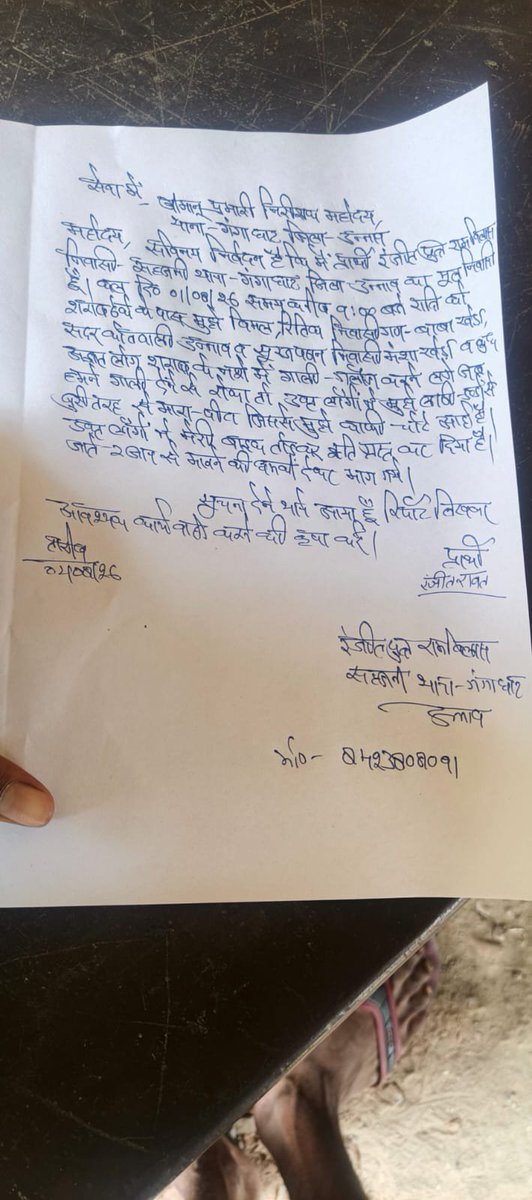 सेवा में, श्रीमान् प्रभारी निरीक्षक महोदय,
थाना-गंगाघाट जिला-उन्नाव
महोदय, सविनय निवेदन है कि मैं प्रार्थी रंजीत पुत्र राम विलास
निवासी- सहजनी थाना-गंगाघाट जिला-उन्नाव का मूल निवासी
हूँ। कल दि० 01/08/26 समय करीब 9:00 बजे रात्रि को
शराब ठेके के पास मुझे विमल, रितिक निवासीगण-बाबा खेड़ा,
सदर कोतवाली उन्नाव व निवासी मंशा खेड़ा व कुछ
लोग शराब के नशे में गाली-गलौज करने लगे जब
हमने गाली देने से रोका तो उक्त लोगों ने मुझे लाठी-डंडों से
बुरी तरह से मारा-पीटा जिससे मुझे काफी चोटें आई हैं।
उक्त लोगों ने मेरी बाइक तोड़कर क्षतिग्रस्त कर दिया है।
जाते-२ जान से मारने की धमकी देकर भाग गये।
सूचना देने थाने आया हूँ रिपोर्ट लिखकर
आवश्यक कार्यवाही करने की कृपा करें।
प्रार्थी
रंजीत रावत
तारीख
02/08/26
रंजीत पुत्र राम विलास
सहजनी थाना-गंगाघाट
उन्नाव
मो०- 8423808091